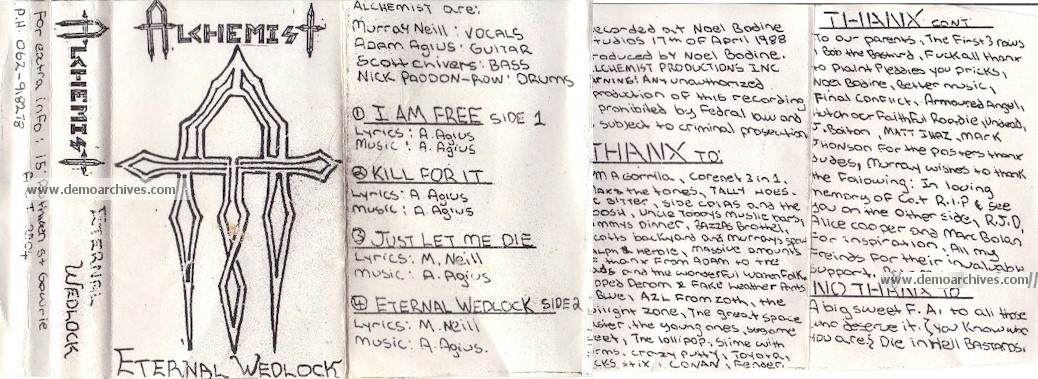 For extra info: 15
haven st Gowrie
A.C.T 2904
P.H 062-918278
ALCHEMIST
ETERNAL WEDLOCK
www.demoarchives.com
ALCHEMIST
ETERNAL WEDLOCK
ALCHEMIST are:
Murray Neill: VOCALS
Adam Agius: GUITAR
Scott Chivers: BASS
NICK PADDON-ROW: DRUMS
① I AM FREE SIDE 1
Lyrics: A. Agius
Music: A. Agius
② KILL FOR IT
Lyrics: A Agius
Music: A. Agius
③ JUST LET ME DIE
Lyrics: M. Neill
Music: A. Agius
④ ETERNAL WEDLOCK SIDE 2
Lyrics: M. Neill
Music: A. Agius.
ecorded at Noel Bodine
tudios 17th of April 1988
roduced by Noel Bodine.
LCHEMIST PRODUCTIONS INC
RNING! Any unauthorized
roduction of this recording
prohibited by Federal law and
subject to criminal prosecution
THANX TO:
m A Gorrilla, Corenet 3 in 1,
the tones, TALLY HOES.
BITTER, SIDE COLAS and the
OOSH, Uncle Tobbys muslie bars,
ummys Dinner, BAZZAS Brothell,
cotts backyard and murrays
Heroic, massive amounts
thanx From ADAM to the
and the wonderful
pped Denom & Fake leather Pants
Blue, AZL From ZOTH, the
wilight zone, The great space
ster, the young ones,
eet, The lollipop, Slime with
rms. Crazy putty, TOYOTA,
CKS STIX, CONAN, Fender.
THANX CONT
To our parents, The First 3 rows
Bob the Bastard, Fuckall thanx
to Phalnt Fleddies you pricks,
Noel Bodine, Better music,
Final Conflict, Armoured Angel,
Huton our Faithful Roadie, Undead,
J. Bolton, MATT , MARK
Jhonson For the posters thanx
Dudes, Murray wishes to thank
the Following: In loving
memory of Cat R.I.P & see
you on the Other side, R.J.D,
Alice cooper and Marc Bolan
For inspiration, All my
Freinds For their invaluable
support,
www.demoarchives.com
NO THANX TO
A big sweet F.A, to all those
who deserve it. {You know who
you are} Die in Hell BASTARDS.